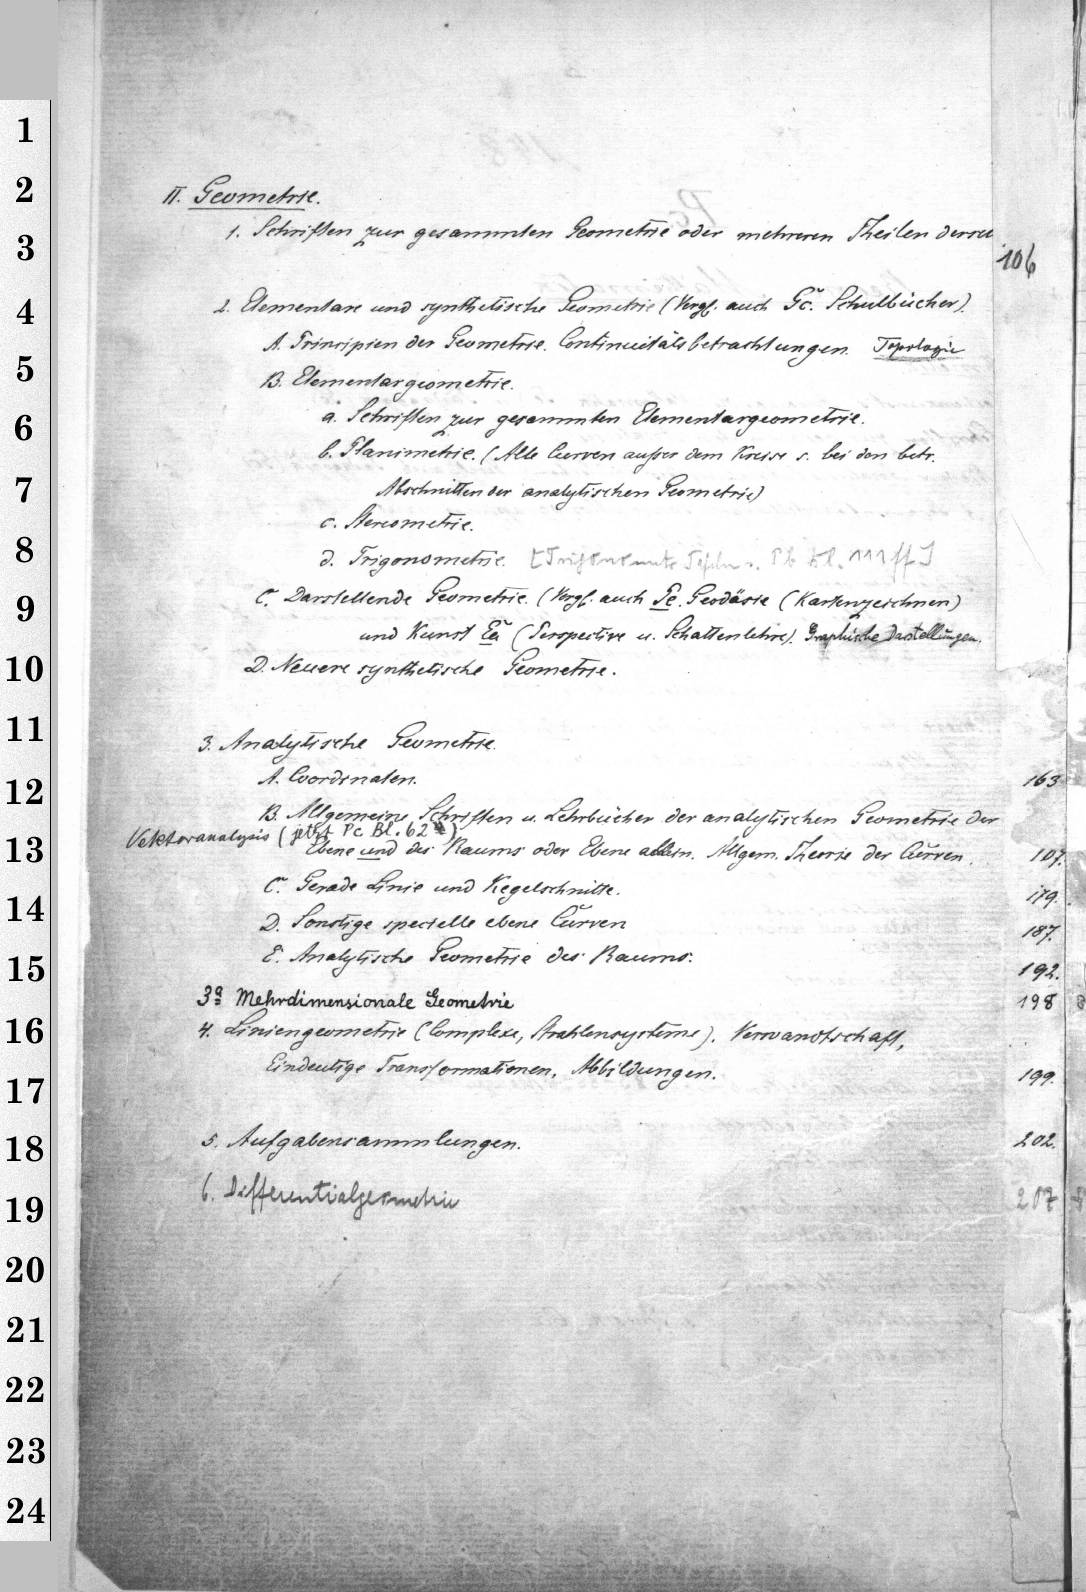 1
2
3
4
5
6
7
8
9
10
11
12
13
14
15
16
17
18
19
20
21
22
23
24
II. Geometrie.
1. Schriften zur gesammten Geometrie oder mehreren Theilen
106
2. Elementare und synthetische Geometrie (Vergl. auch Gč. Schulbücher).
A. Principien der Geometrie. Continuitätsbetrachtungen. Topologie
B. Elementargeometrie.
a. Schriften zur gesammten Elementargeometrie.
b. Planimetrie. (Alle Curven außer dem Kreise s. bei den betr.
Abschnitten der analytischen Geometrie)
c. Stereometrie.
d. Trigonometrie. Bl. 111 ff]
C. Darstellende Geometrie. (Vergl. auch Geodäsie (Kartenzeichnen)
und Kunst (Perspective u. Schattenlehre). Graphische Darstellungen.
D. Neuere synthetische Geometrie.
3. Analytische Geometrie.
A. Coordinaten. 163
B. Allgemeine Schriften u. Lehrbücher der analytischen Geometrie der
Vektoranalysis (jetzt Pc Bl. 62)
Ebene und des Raums oder Ebene allein. Allgem. Theorie der Curven. 107.
C. Gerade Linie und Kegelschnitte. 179.
D. Sonstige specielle ebene Curven 187.
E. Analytische Geometrie des Raums. 192.
3a Mehrdimensionale Geometrie 198
4. Liniengeometrie (Complexe, Strahlensysteme). Verwandtschaft,
Eindeutige Transformationen. Abbildungen. 199.
5. Aufgabensammlungen. 202.
6. Differentialgeometrie 207